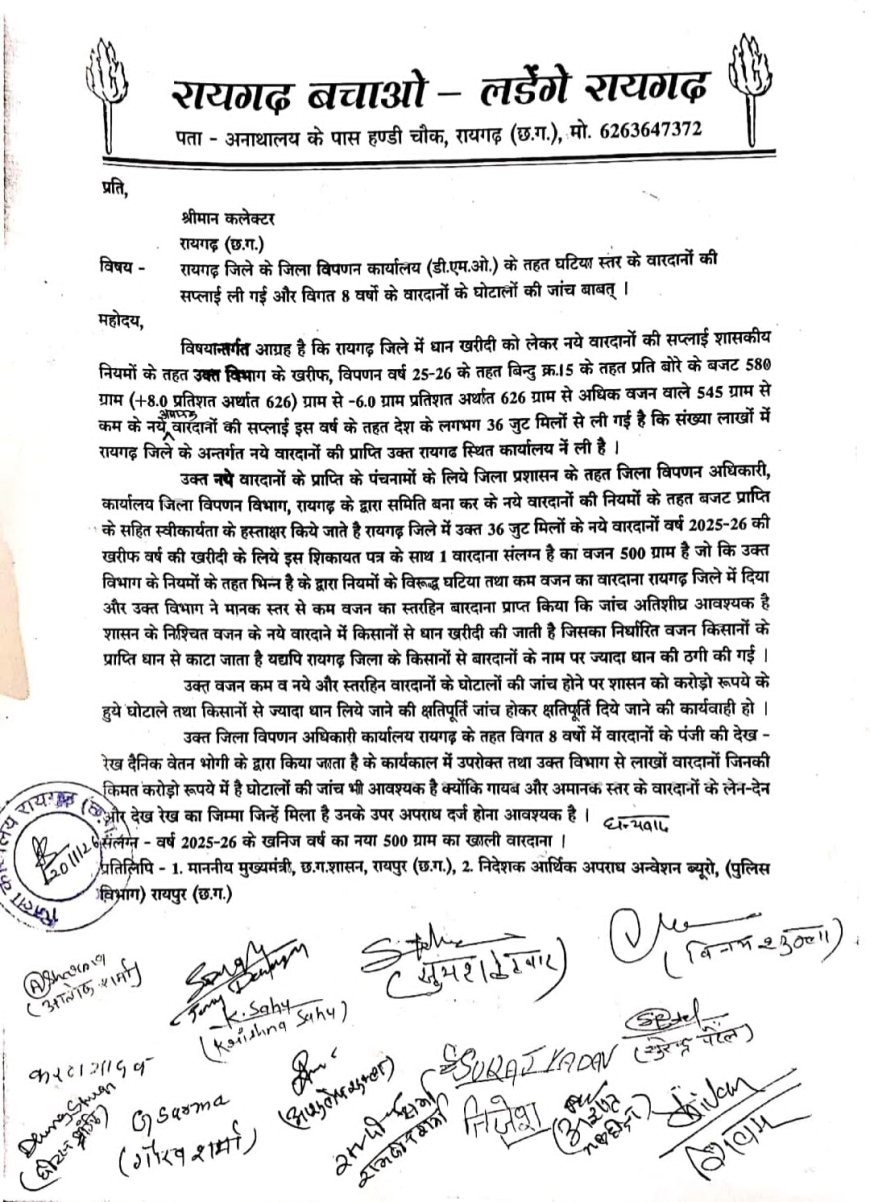 रायगढ़ बचाओ – लडेंगे रायगढ़
पता - अनाथालय के पास हण्डी चौक, रायगढ़ (छ.ग.), मो. 6263647372
प्रति,
श्रीमान कलेक्टर
रायगढ़ (छ.ग.)
विषय - रायगढ़ जिले के जिला विपणन कार्यालय (डी.एम.ओ.) के तहत घटिया स्तर के वारदानों की
सप्लाई ली गई और विगत 8 वर्षो के वारदानों के घोटालों की जांच बाबत् ।
महोदय,
विषयान्तर्गत आग्रह है कि रायगढ़ जिले में धान खरीदी को लेकर नये वारदानों की सप्लाई शासकीय
नियमों के तहत उक्त विभाग के खरीफ, विपणन वर्ष 25-26 के तहत बिन्दु क्र.15 के तहत प्रति बोरे के बजट 580
ग्राम (+8.0 प्रतिशत अर्थात 626) ग्राम से -6.0 ग्राम प्रतिशत अर्थात 626 ग्राम से अधिक वजन वाले 545 ग्राम से
कम के नये वारदानों की सप्लाई इस वर्ष के तहत देश के लगभग 36 जुट मिलों से ली गई है कि संख्या लाखों में
रायगढ़ जिले के अन्तर्गत नये वारदानों की प्राप्ति उक्त रायगढ स्थित कार्यालय नें ली है ।
उक्त नये वारदानों के प्राप्ति के पंचनामों के लिये जिला प्रशासन के तहत जिला विपणन अधिकारी,
कार्यालय जिला विपणन विभाग, रायगढ़ के द्वारा समिति बना कर के नये वारदानों की नियमों के तहत बजट प्राप्ति
के सहित स्वीकार्यता के हस्ताक्षर किये जाते है रायगढ़ जिले में उक्त 36 जुट मिलों के नये वारदानों वर्ष 2025-26 की
खरीफ वर्ष की खरीदी के लिये इस शिकायत पत्र के साथ 1 वारदाना संलग्न है का वजन 500 ग्राम है जो कि उक्त
विभाग के नियमों के तहत भिन्न है के द्वारा नियमों के विरूद्ध घटिया तथा कम वजन का वारदाना रायगढ़ जिले में दिया
और उक्त विभाग ने मानक स्तर से कम वजन का स्तरहिन बारदाना प्राप्त किया कि जांच अतिशीघ्र आवश्यक है
शासन के निश्चित वजन के नये वारदाने में किसानों से धान खरीदी की जाती है जिसका निर्धारित वजन किसानों के
प्राप्ति धान से काटा जाता है यद्यपि रायगढ़ जिला के किसानों से बारदानों के नाम पर ज्यादा धान की ठगी की गई ।
उक्त वजन कम व नये और स्तरहिन वारदानों के घोटालों की जांच होने पर शासन को करोड़ो रूपये के
हुये घोटाले तथा किसानों से ज्यादा धान लिये जाने की क्षतिपूर्ति जांच होकर क्षतिपूर्ति दिये जाने की कार्यवाही हो ।
उक्त जिला विपणन अधिकारी कार्यालय रायगढ़ के तहत विगत 8 वर्षो में वारदानों के पंजी की देख -
रेख दैनिक वेतन भोगी के द्वारा किया जाता है के कार्यकाल में उपरोक्त तथा उक्त विभाग से लाखों वारदानों जिनकी
किमत करोड़ो रूपये में है घोटालों की जांच भी आवश्यक है क्योंकि गायब और अमानक स्तर के वारदानों के लेन-देन
और देख रेख का जिम्मा जिन्हें मिला है उनके उपर अपराध दर्ज होना आवश्यक है ।
धन्यवाद
संलग्न - वर्ष 2025-26 के खनिज वर्ष का नया 500 ग्राम का खाली वारदाना ।
प्रतिलिपि - 1. माननीय मुख्यमंत्री, छ.ग.शासन, रायपुर (छ.ग.), 2. निदेशक आर्थिक अपराध अन्वेशन ब्यूरो, (पुलिस
विभाग) रायपुर (छ.ग.)
ASharma
K. Sahu
(Krishna Sahu)
SURAJ YADAV
G Sarma
(गौरव शर्मा)